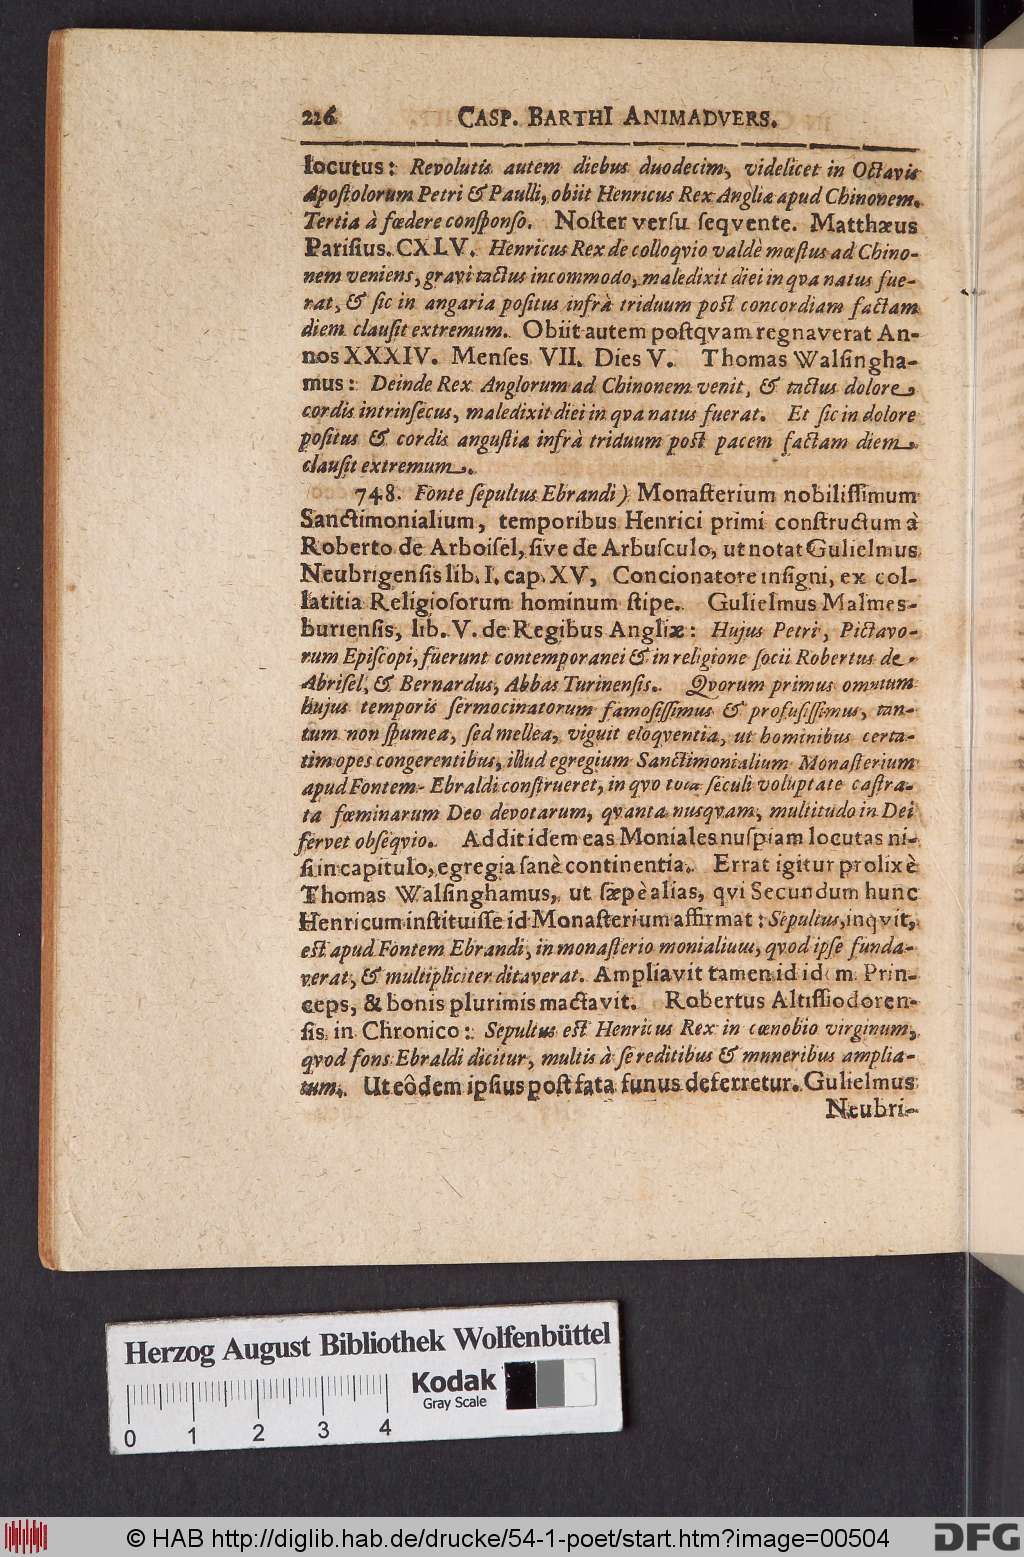 226 CASP. BARTHI ANIMADVERS.
locutus: Revolutis autem diebus duodecim, videlicet in Octavis
Apoſtolorum Petri & Paulli, obiit Henricus Rex Angliæ apud Chinonem.
Tertia à fœdere conſponſo. Noſter verſu ſeqvente. Matthæus
Pariſius. CXLV. Henricus Rex de colloqvio valdè mœſtus ad Chino-
nem veniens, gravi tactus incommodo, maledixit diei in qva natus fue-
rat, & ſic in angaria poſitus infrà triduum poſt concordiam factam
diem clauſit extremum. Obiit autem poſtqvam regnaverat An-
nos XXXIV. Menſes VII. Dies V. Thomas Walſingha-
mus: Deinde Rex Anglorum ad Chinonem venit, & tactus dolore
cordis intrinſecus, maledixit diei in qva natus fuerat. Et ſic in dolore
poſitus & cordis anguſtia infrà triduum poſt pacem factam diem
clauſit extremum.
748. Fonte ſepultus Ebrandi) Monaſterium nobiliſſimum
Sanctimonialium, temporibus Henrici primi conſtructum à
Roberto de Arboiſel, ſive de Arbuſculo, ut notat Gulielmus
Neubrigenſis lib. I. cap. XV, Concionatore inſigni, ex col-
latitia Religioſorum hominum ſtipe. Gulielmus Malmes-
burienſis, lib. V. de Regibus Angliæ: Hujus Petri, Pictavo-
rum Epiſcopi, fuerunt contemporanei & in religione ſocii Robertus de
Abriſel, & Bernardus, Abbas Turinenſis. Qvorum primus omnium
hujus temporis ſermocinatorum famoſiſſimus & profuſiſſimus, tan-
tum non ſpumea, ſed mellea, viguit eloqventia, ut hominibus certa-
tim opes congerentibus, illud egregium Sanctimonialium Monaſterium
apud Fontem-Ebraldi conſtrueret, in qvo tota ſeculi voluptate caſtra-
ta fœminarum Deo devotarum, qvanta nusqvam, multitudo in Dei
fervet obſeqvio. Addit idem eas Moniales nuſpiam locutas ni-
ſi in capitulo, egregia ſanè continentia. Errat igitur prolixè
Thomas Walſinghamus, ut ſæpè alias, qvi Secundum hunc
Henricum inſtituiſſe id Monaſterium affirmat: Sepultus, inqvit,
eſt apud Fontem Ebrandi, in monaſterio monialium, qvod ipſe funda-
verat, & multipliciter ditaverat. Ampliavit tamen id id m Prin-
ceps, & bonis plurimis mactavit. Robertus Altiſſiodoren-
ſis in Chronico: Sepultus eſt Henricus Rex in cœnobio virginum,
qvod fons Ebraldi dicitur, multis à ſe reditibus & muneribus amplia-
tum. Ut eôdem ipſius poſt fata funus deferretur. Gulielmus
Neubri-
Herzog August Bibliothek Wolfenbüttel
Kodak
Gray Scale
0 1 2 3 4
© HAB http://diglib.hab.de/drucke/54-1-poet/start.htm?image=00504
DFG